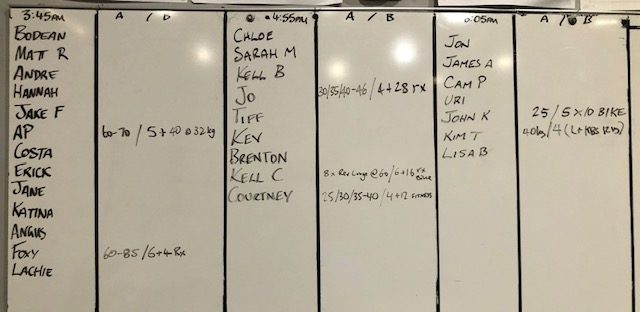 3:45AM
BODEAN
MATT R
ANDRE
HANNAH
JAKE F
AP
COSTA
ERICK
JANE
KATINA
ANGUS
FOXY
LACHIE
A / D
60-70 / 5+40 @ 32kg
60-85 / 6+4 Rx
4:55PM
CHLOE
SARAH M
KELL B
JO
TIFF
KEV
BRENTON
KELL C
COURTNEY
A / B
30/35/40-46 / 4+28 rx
8x Rev Lunge @ 60 / 6+16 rx
25/30/35-40 / 4+12 FITNESS
6:05PM
JON
JAMES A
CAM P
URI
JOHN K
KIM T
LISA B
A / B
25 / 5 x 10 BIKE
40kg / 4 (L+KBS